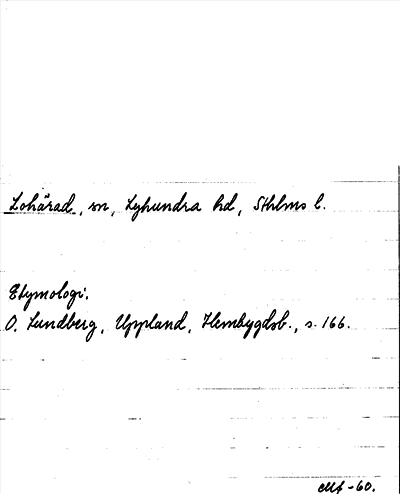 Lohärad, sn, Lyhundra hd, Sthlms l.
Etymologi.
O. Lundberg, Uppland, Hembygdsb., s. 166.
-60.